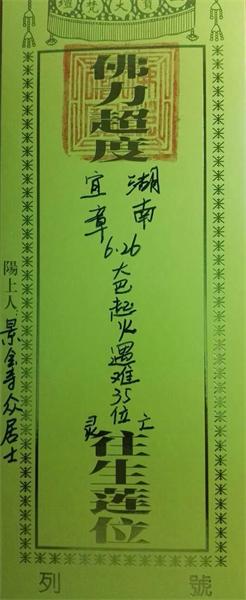 佛力超度
湖南
宜章
6.26大巴起火遇难35位
亡灵
往生莲位
陽上人:景金寺众居士
列號